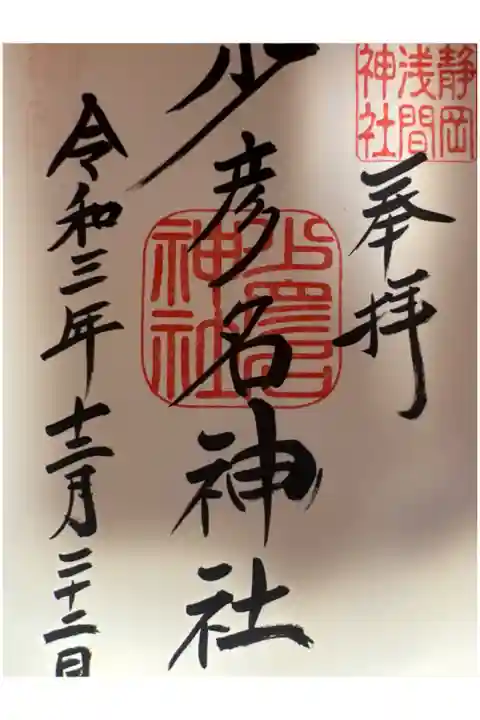 静岡
浅間
神社
奉拝
少彦名神社
少彦名
神社
令和三年十二月二十二日